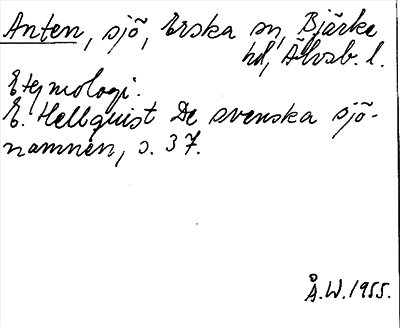 Anten, sjö, Erska sn, Bjärke
hd, Älvsb. l.
Etymologi.
E. Hellquist De svenska sjö-
namnen, s. 37.
Å.W. 1955.